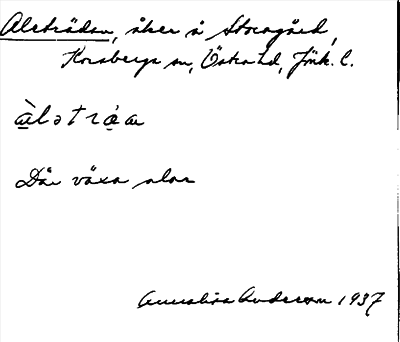 Aleträdan, åker å Storegård,
Korsberga sn, Östra hd, Jönk. l.
àlətrạ̀æ
Där växa alar
Annalisa Anderson 1937